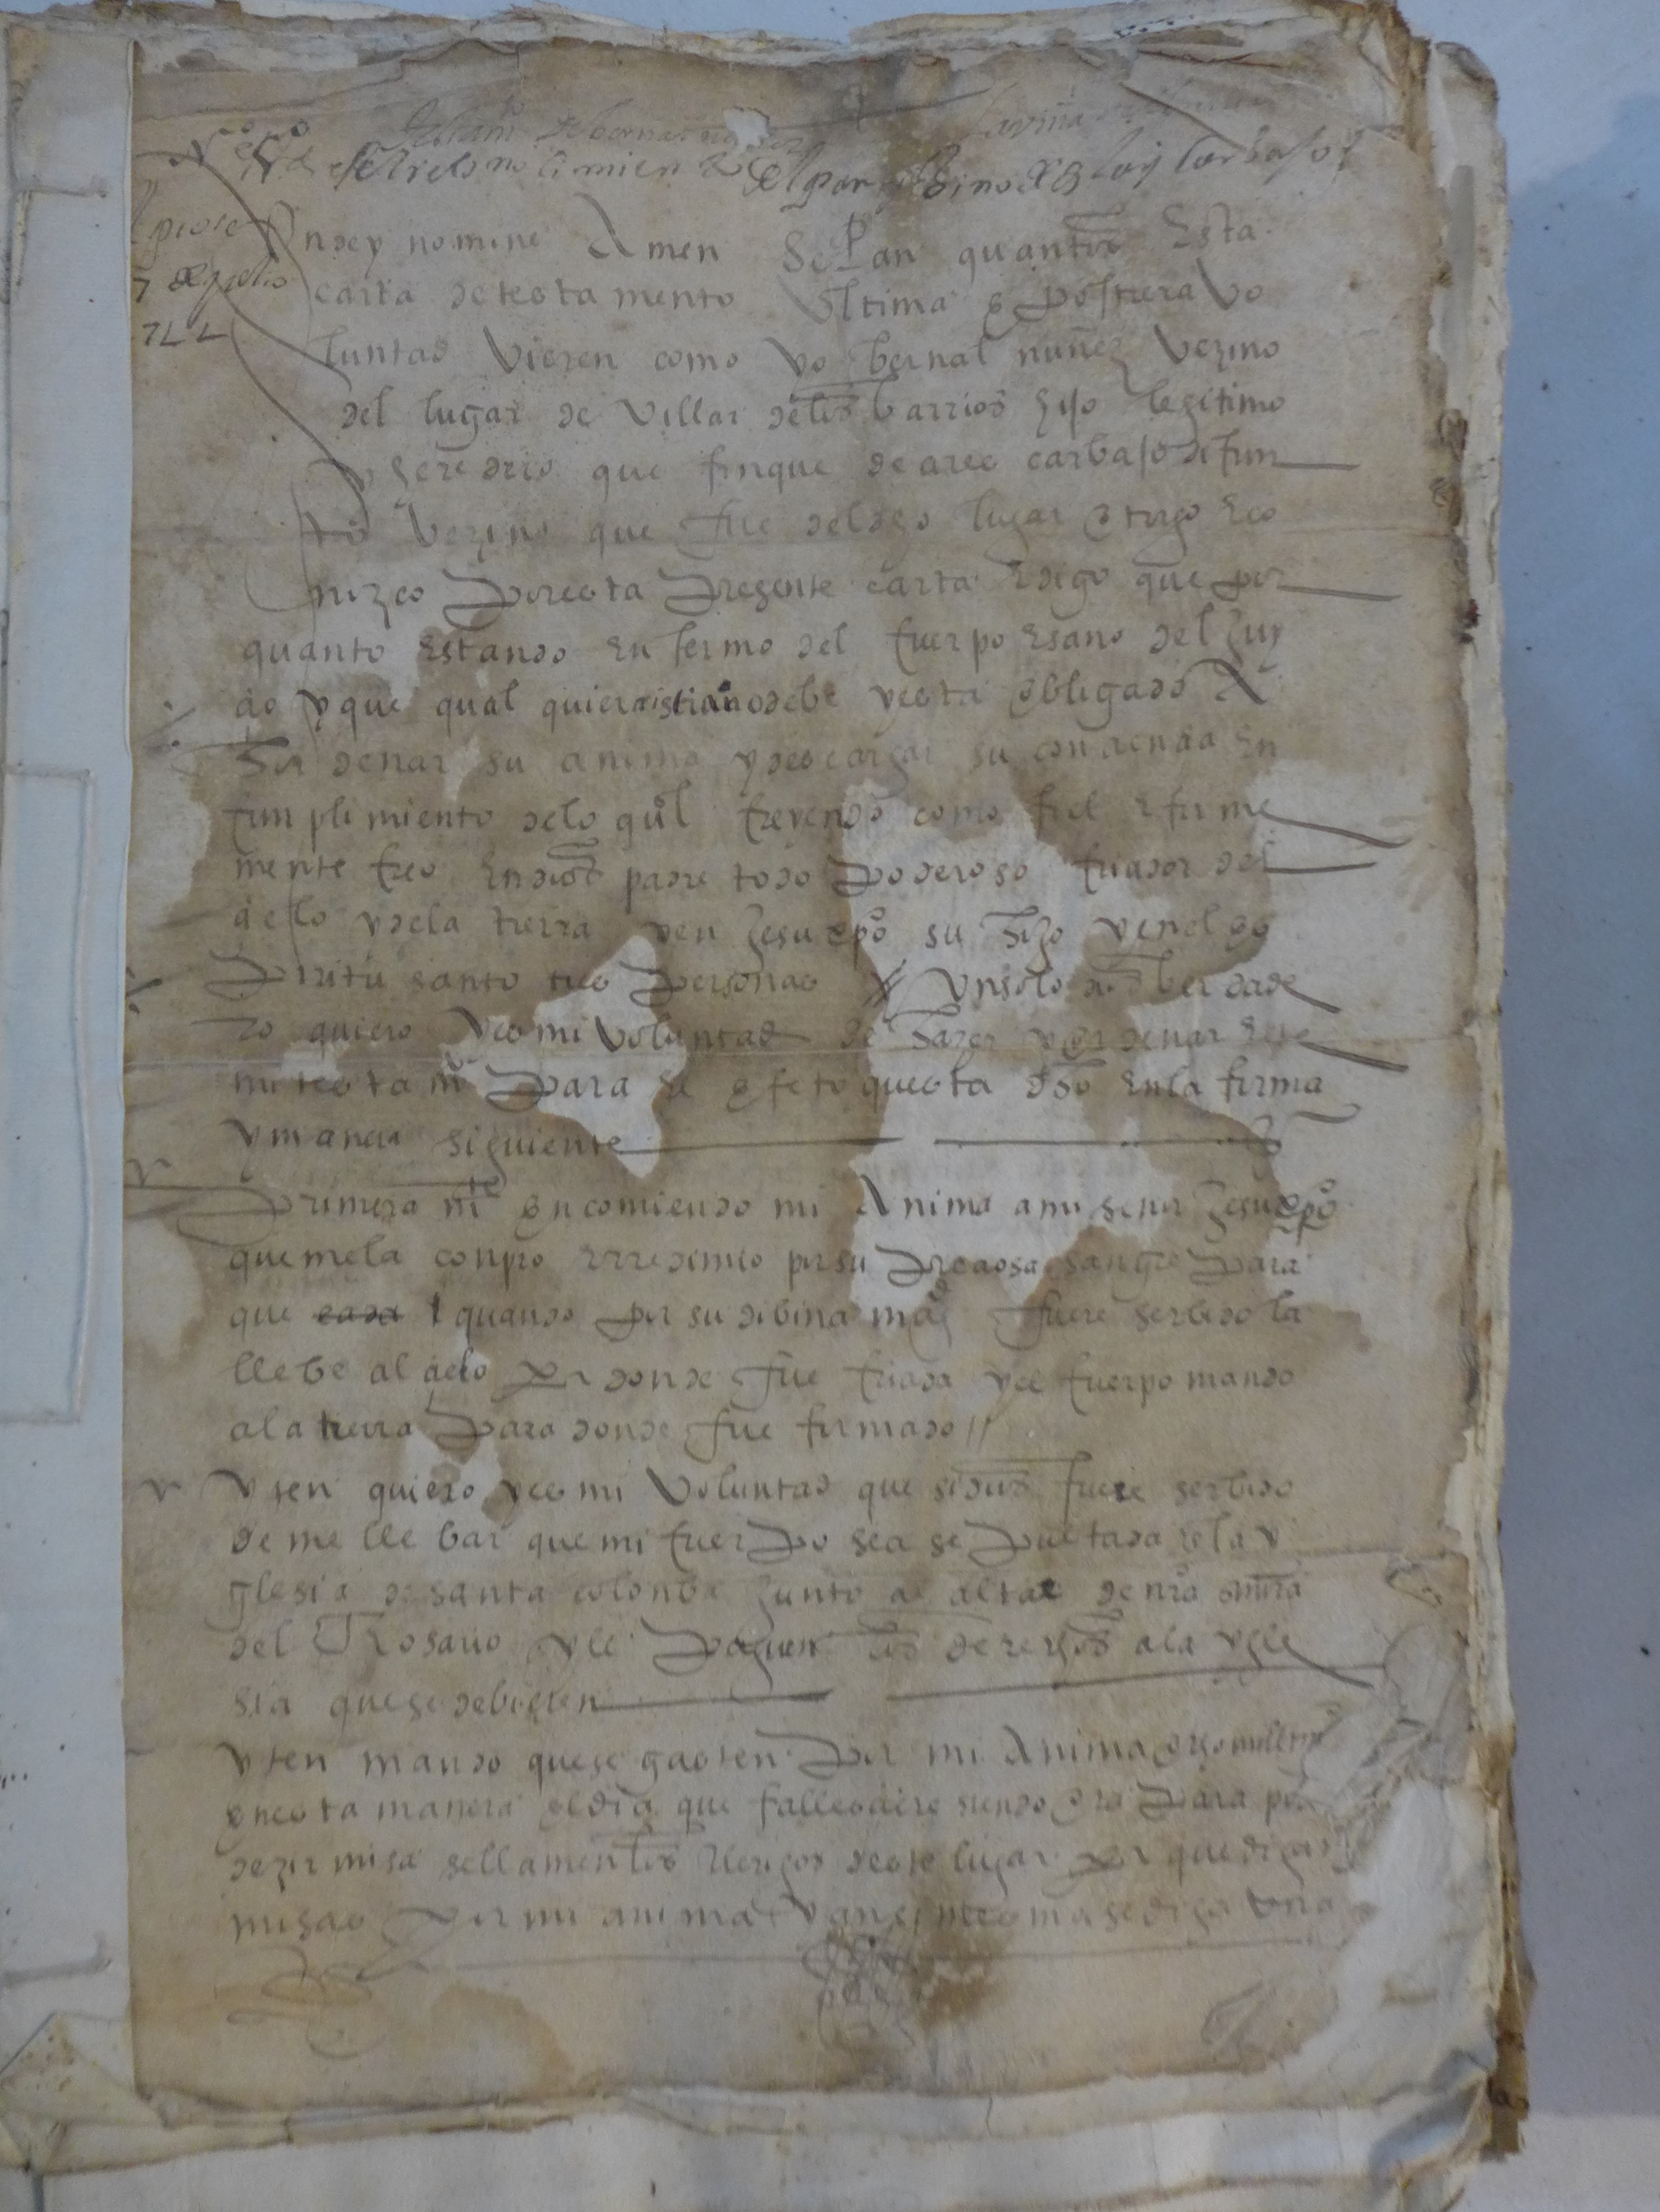 Yndey nomine Amen Sepan quantos Esta
carta de testamento Ultima e postrera Vo
luntad Vieren como yo bernal nuñez Vezino
del lugar de Villar delos barrios hijo legitimo
y heredero que finque de ares carbajo difun
to Vezino que fue del dho lugar otorgo Eco
nozco Por esta Presente carta Edigo que por
quanto Estando Enfermo del cuerpo Esano del Juy
çio y que qual quier cristiano debe yesta obligado A
hordenar su anima y descargar su conçiençia En
cunplimiento delo qual creyendo como fiel e firme
mente creo En dios padre todo Poderoso criador del
çielo y dela tierra y en Jesu xpo su hijo y en el es
Piritu santo tres Personas Y Un solo dios berdade
ro quiero yes mi Voluntad de hazer y ordenar Este
mi testamto Para el efeto questa dho En la forma
y manera siguiente
Primeramte encomiendo mi Anima a mi señor Jesu xpo
que me la conpro Erredimio por su Preçiosa sangre Para
que cada quando por su dibina magd fuere serbido la
llebe al çielo Por donde fue criada y el cuerpo mando
a la tierra Para donde fue formado //
Yten quiero yes mi Voluntad que si dios fuere serbido
de me llebar que mi cuerPo sea sePultada en la y
glesia de santa colonba Junto al altar de nra señora
del Rosario y le Paguen los derechos a la ygle
sia que se debieren
Yten mando que se gasten Por mi Anima ocho mill mrs
en esta manera el dia que falleçiere siendo ora Para po
dezir misa se llamen los clerigos deste lugar Por que digan
misas Por mi anima y ansi mesmo se diga Una